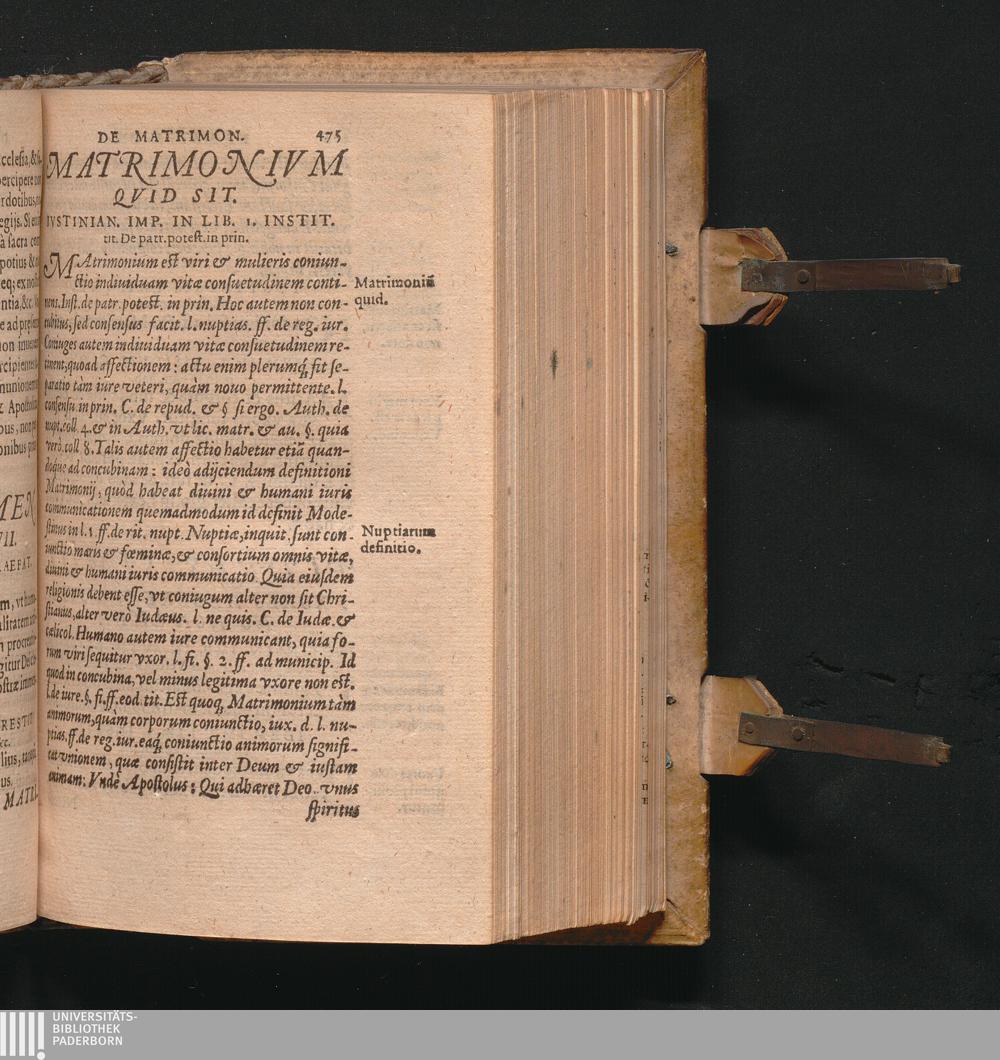 DE MATRIMON. 475
MATRIMONIVM
QVID SIT.
IVSTINIAN. IMP. IN LIB. 1. INSTIT.
tit. De patr. potest. in prin.
MAtrimonium est viri & mulieris coniun-
ctio indiuiduam vitæ consuetudinem conti-
nens. Inst. de patr. potest. in prin. Hoc autem non con-
cubitus, sed consensus facit. l. nuptias. ff. de reg. iur.
Coniuges autem indiuiduam vitæ consuetudinem re-
tinent, quoad affectionem: actu enim plerumq́; fit se-
paratio tàm iure veteri, quàm nouo permittente. l.
consensu. in prin. C. de repud. & § si ergo. Auth. de
nupt. coll. 4. & in Auth. vt lic. matr. & au. §. quia
verò. coll 8. Talis autem affectio habetur etiã quan-
doque ad concubinam: ideò adijciendum definitioni
Matrimonij, quòd habeat diuini & humani iuris
communicationem quemadmodum id definit Mode-
stinus in l. 1 ff. de rit. nupt. Nuptiæ, inquit. sunt con-
iunctio maris & fœminæ, & consortium omnis vitæ,
diuini & humani iuris communicatio Quia eiusdem
religionis debent esse, vt coniugum alter non sit Chri-
stianus, alter verò Iudæus. l. ne quis. C. de Iudæ. &
cælicol. Humano autem iure communicant, quia fo-
rum viri sequitur vxor. l. fi. §. 2. ff. ad municip. Id
quod in concubina, vel minus legitima vxore non est.
l. de iure. §. fi. ff. eod. tit. Est quoq; Matrimonium tàm
animorum, quàm corporum coniunctio, iux. d. l. nu-
ptias. ff. de reg. iur. eaq́; coniunctio animorum signifi-
cat vnionem, quæ consistit inter Deum & iustam
animam: Vndè Apostolus: Qui adhæret Deo. vnus
spiritus
Matrimoniũ
quid.
Nuptiarum
definitio.
UNIVERSITÄTS-
BIBLIOTHEK
PADERBORN